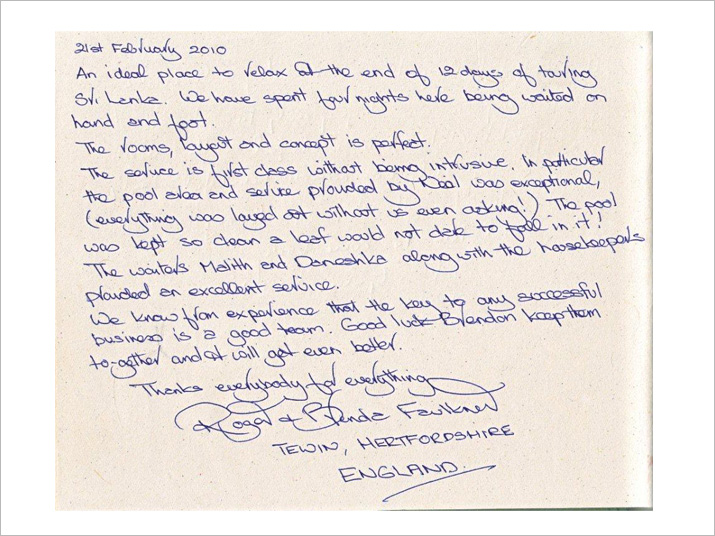 21st February 2010
An ideal place to relax at the end of 12 days of touring
Sri Lanka. We have spent four nights here being waited on
hand and foot.
The rooms, layout and concept is perfect.
The service is first class without being intrusive. In particular
the pool area and service provided by was exceptional,
(everything was layed out without us even asking!) The pool
was kept so clean a leaf would not dare to fall in it!
The waiters Malith and Daneshka along with the housekeepers
provided an excellent service.
We know from experience that the key to any successful
business is a good team. Good luck Brendon keep them
to-gether and it will get even better.
Thanks everybody for everything
Roger & Brenda Faulkner
TEWIN, HERTFORDSHIRE
ENGLAND.